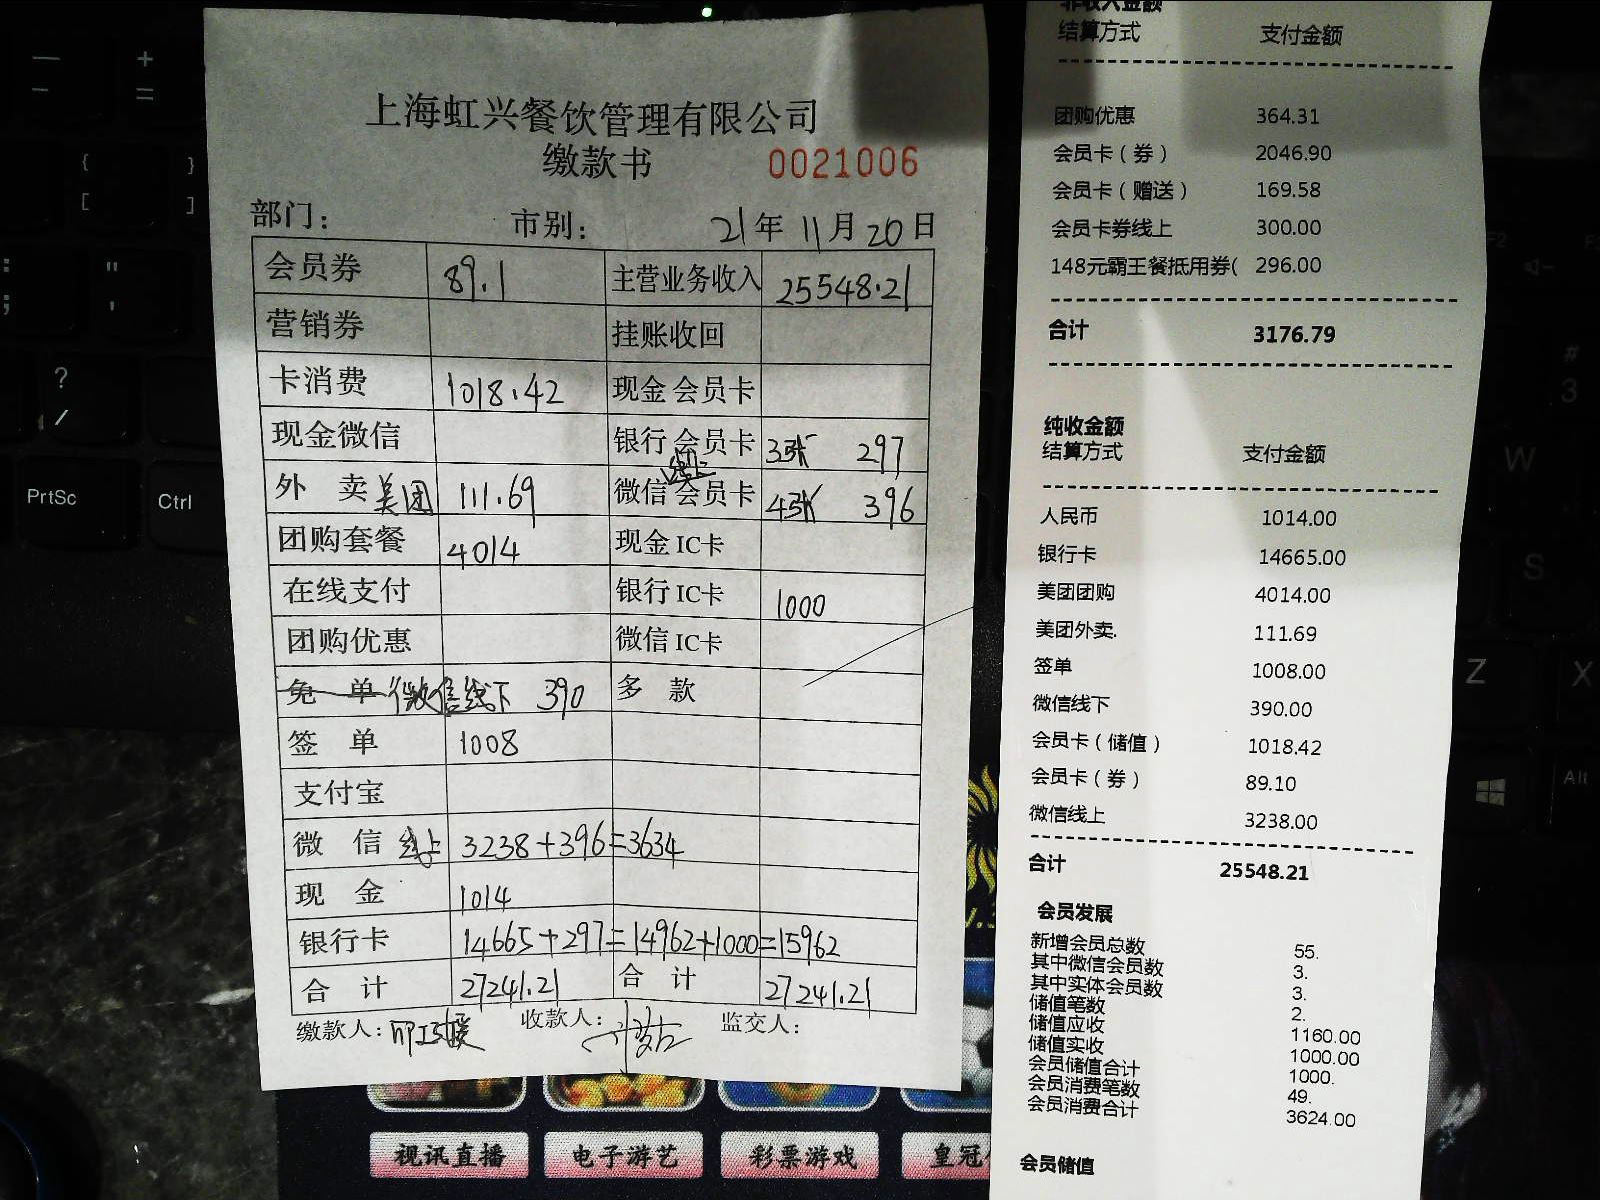 上海虹兴餐饮管理有限公司
缴款书 0021006
部门: 市别: 21年11月20日
会员券 89.1 主营业务收入 25548.21
营销券 挂账收回
卡消费 1018.42 现金会员卡
现金微信 银行会员卡 3张 297
外卖美团 111.69 微信线上会员卡 4张 396
团购套餐 4014 现金IC卡
在线支付 银行IC卡 1000
团购优惠 微信IC卡
免单 微信线下 390 多款
签单 1008
支付宝
微信线上 3238+396=3634
现金 1014
银行卡 14665+297=14962+1000=15962
合计 27241.21 合计 27241.21
缴款人: 收款人: 监交人:
非收入金额
结算方式 支付金额
团购优惠 364.31
会员卡(券) 2046.90
会员卡(赠送) 169.58
会员卡券线上 300.00
148元霸王餐抵用券( 296.00
合计 3176.79
纯收金额
结算方式 支付金额
人民币 1014.00
银行卡 14665.00
美团团购 4014.00
美团外卖. 111.69
签单 1008.00
微信线下 390.00
会员卡(储值) 1018.42
会员卡(券) 89.10
微信线上 3238.00
合计 25548.21
会员发展
新增会员总数 55.
其中微信会员数 3.
其中实体会员数 3.
储值笔数 2.
储值应收 1160.00
储值实收 1000.00
会员储值合计 1000.
会员消费笔数 49.
会员消费合计 3624.00
会员储值
PrtSc
Ctrl
Alt
视讯直播
电子游艺
彩票游戏
皇冠